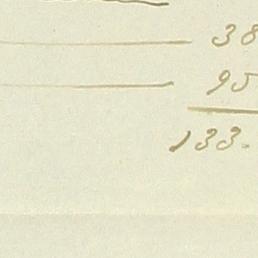 38
95
133.